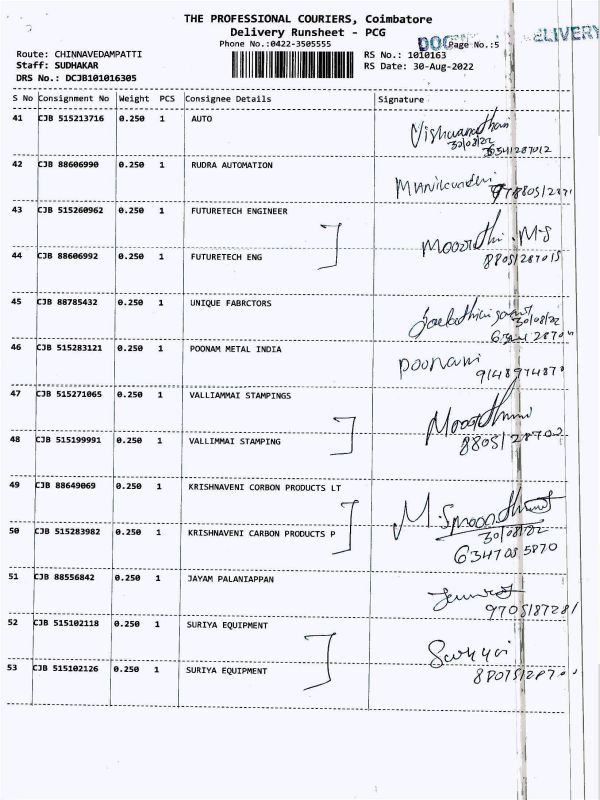 THE PROFESSIONAL COURIERS, Coimbatore
Delivery Runsheet - PCG
Phone No.:0422-3505555
Page No.:5
DELIVERY
Route: CHINNAVEDAMPATTI
RS No.: 1010163
Staff: SUDHAKAR
RS Date: 30-Aug-2022
DRS No.: DCJB101016305
S No Consignment No Weight PCS Consignee Details Signature
41 CJB 515213716 0.250 1 AUTO
30/08/22
42 CJB 88606990 0.250 1 RUDRA AUTOMATION
43 CJB 515260962 0.250 1 FUTURETECH ENGINEER
44 CJB 88606992 0.250 1 FUTURETECH ENG
45 CJB 88785432 0.250 1 UNIQUE FABRCTORS
30/08/22
46 CJB 515283121 0.250 1 POONAM METAL INDIA
47 CJB 515271065 0.250 1 VALLIAMMAI STAMPINGS
48 CJB 515199991 0.250 1 VALLIMMAI STAMPING
49 CJB 88649069 0.250 1 KRISHNAVENI CORBON PRODUCTS LT
50 CJB 515283982 0.250 1 KRISHNAVENI CARBON PRODUCTS P
30/08/22
51 CJB 88556842 0.250 1 JAYAM PALANIAPPAN
52 CJB 515102118 0.250 1 SURIYA EQUIPMENT
53 CJB 515102126 0.250 1 SURIYA EQUIPMENT